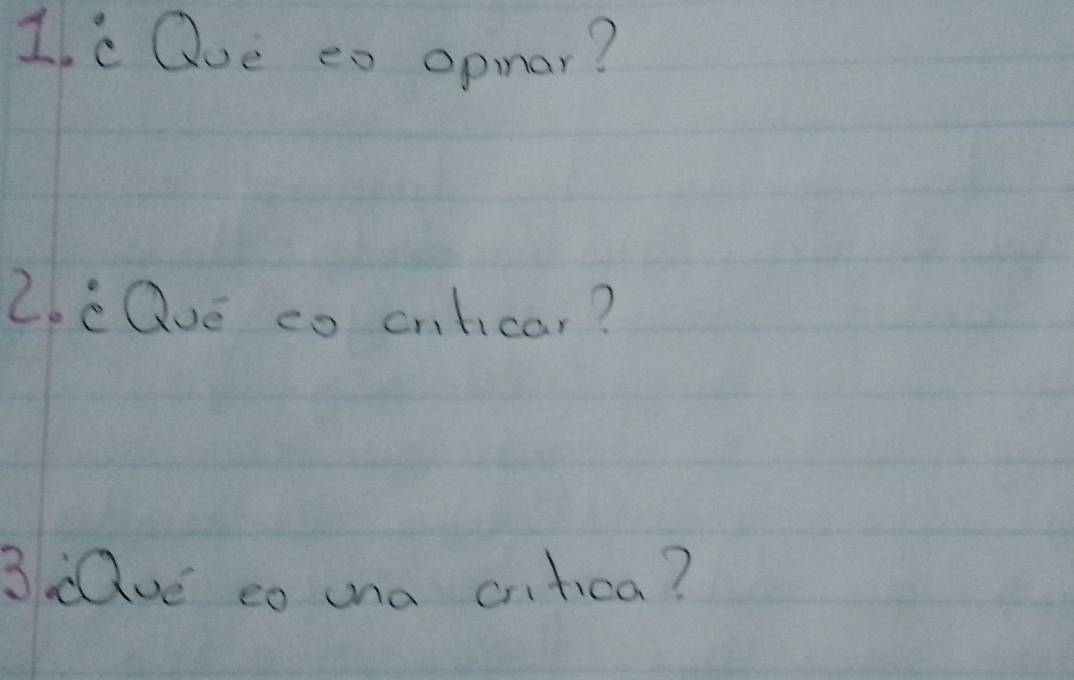 1. ¿Qué es opinar?
2. ¿Qué es criticar?
3. ¿Qué es una critica?